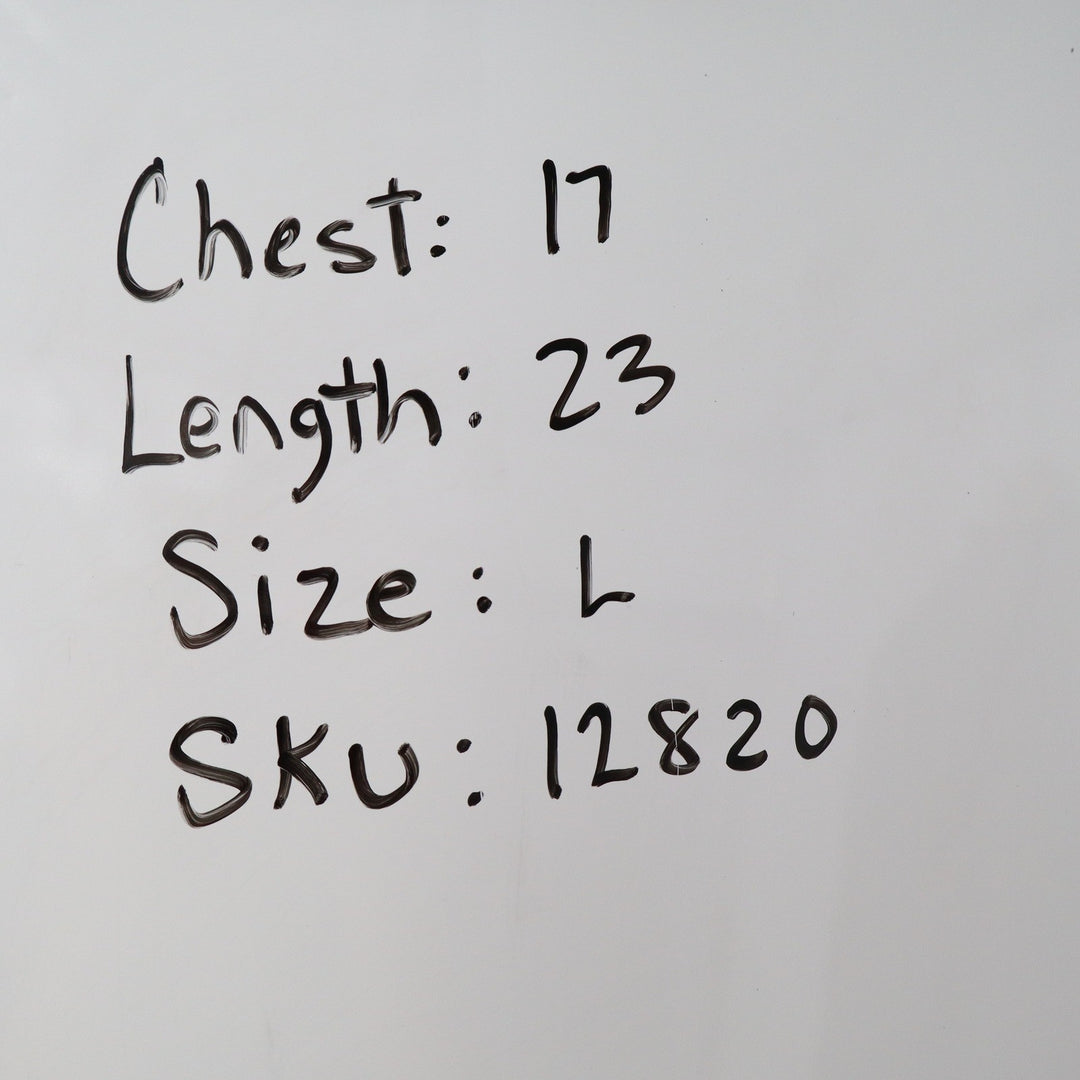 Chest: 17
Length: 23
Size: L
SKU: 12820